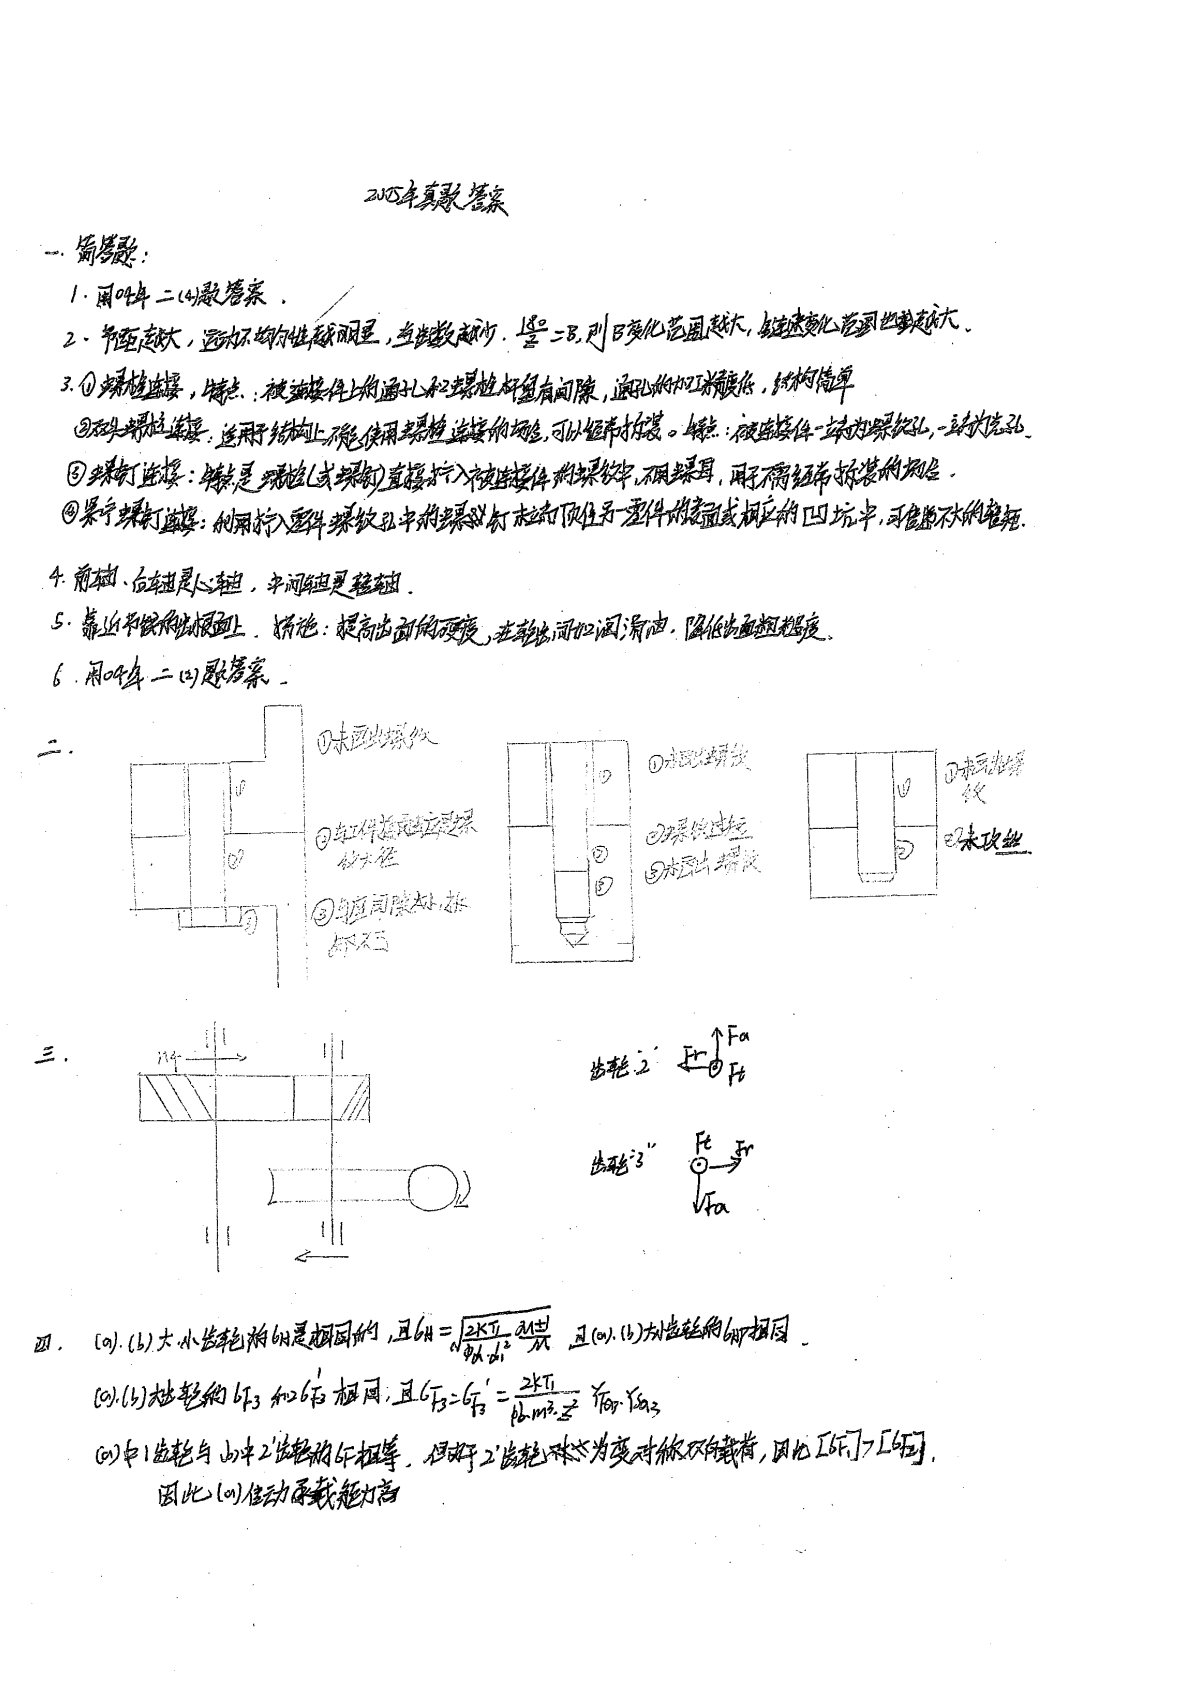 2005年真题答案
一. 简答题:
1. 同04年二(4)题答案.
2. 节距越大，运动不均匀性越明显，当齿数越少. 180/z=β, 则β变化范围越大, 链速变化范围也就越大.
3. ①螺栓连接，特点：被连接件上的通孔和螺栓杆留有间隙，通孔的加工精度低，结构简单
②双头螺柱连接：适用于结构上不能使用螺栓连接的场合，可以经常拆装。特点：被连接件一端为螺纹孔,一端为光孔.
③螺钉连接：特点是螺栓(或螺钉)直接拧入被连接件的螺纹中,不用螺母，用于不需经常拆装的场合.
④紧定螺钉连接：利用拧入零件螺纹孔中的螺钉末端顶住另一零件的表面或相应的凹坑中，可传递不大的转矩.
4. 前轴、后轴是心轴，中间轴是转轴.
5. 靠近节线的齿根面上. 措施：提高齿面的硬度，在轮齿间加润滑油. 降低齿面粗糙度.
6. 同04年二(2)题答案.
二.
①未画出螺纹
②与工件接触应是螺
纹大径
③
①未画出螺纹
②螺纹
③未画出螺纹
①未画出螺
纹
②未攻丝
① ② ③
① ② ③
① ②
三.
n4
齿轮"2" Fa Fr Ft
齿轮"3" Ft Fr Fa
四. (a).(b)大.小齿轮的σH是相同的，且σH=√(2KT1/(φd·d1²)·(u±1)/u) 且(a).(b)大小齿轮的σHP相同.
(a).(b)大齿轮的σF3和σF3'相同；且σF3=σF3'=2KT1/(φd·m³·z²) YFa3·YSa3
(a)中1齿轮与(b)中2'齿轮的σF相等. 但对于2'齿轮为变对称双向载荷，因此[σF1]>[σF2'].
因此(a)传动承载能力高